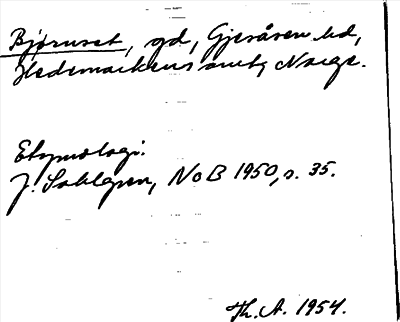 Bjøruset, gd, Gjesåsen sd,
Hedemarkens amt, Norge.
Etymologi:
J. Sahlgren, NoB 1950, s. 35.
Th. A. 1954.